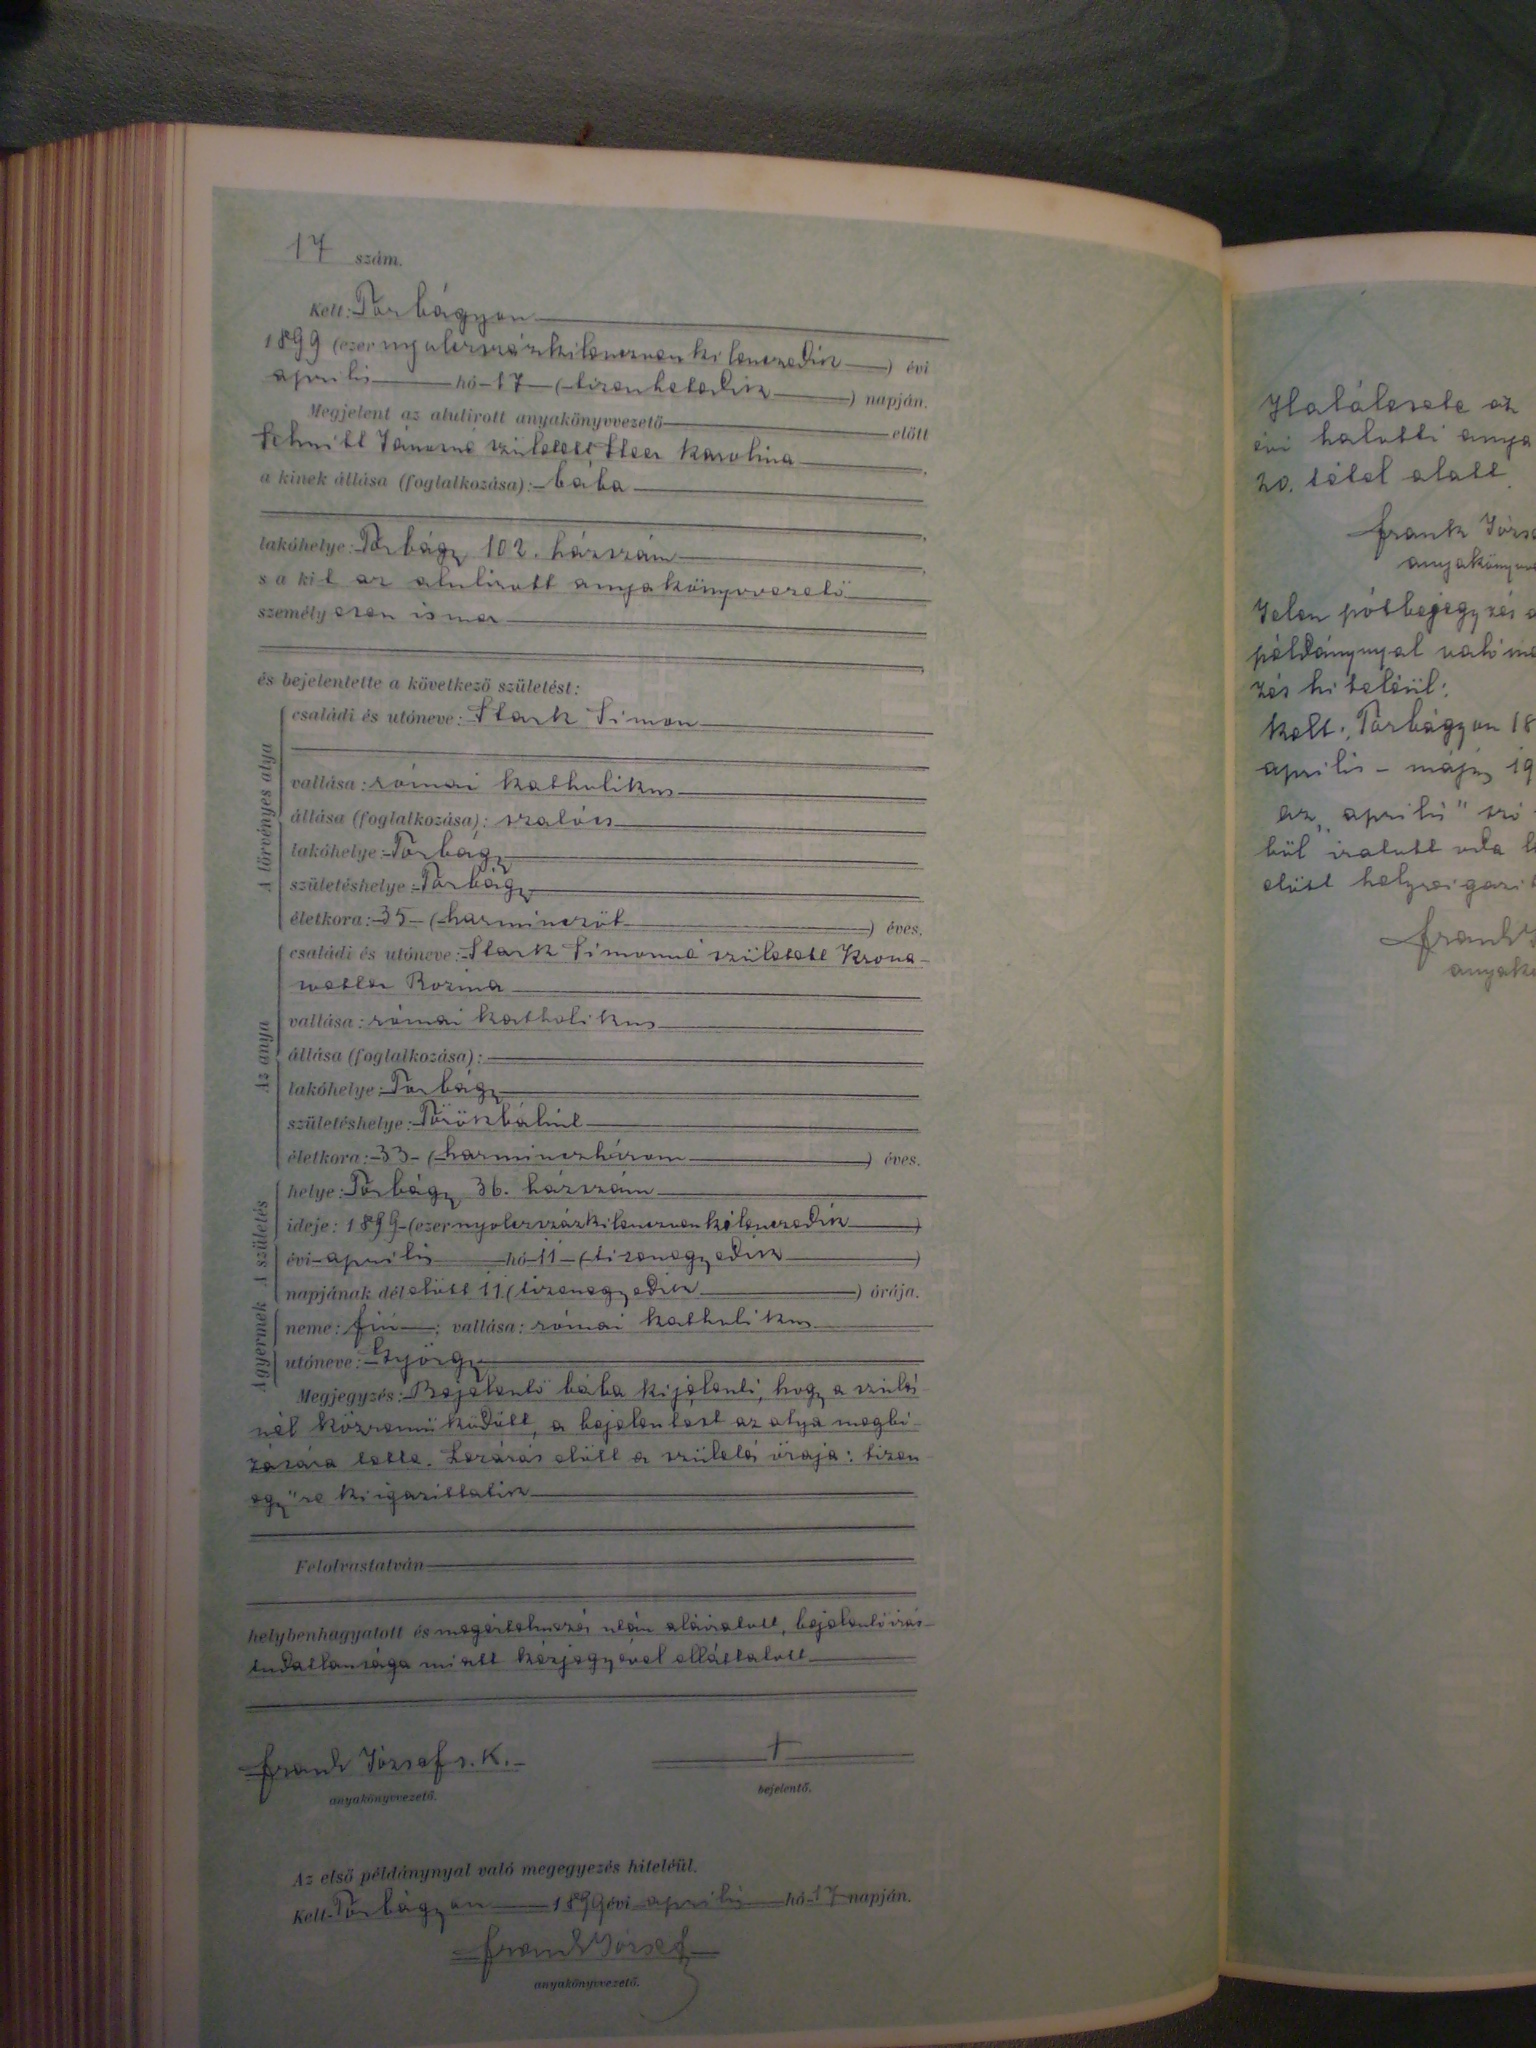 17 szám.
Kelt: Torbágyon
1899 (ezer nyolczszázkilenczvenkilenczedik) évi
április hó 17 (tizenhetedik) napján.
Megjelent az alulirott anyakönyvvezető előtt
Schmitt Jánosné született Steer Karolina,
a kinek állása (foglalkozása): bába
lakóhelye: Torbágy 102. házszám,
s a kit az alulirott anyakönyvvezető
személyesen ismer
és bejelentette a következő születést:
A törvényes atya
családi és utóneve: Stark Simon
vallása: római katholikus
állása (foglalkozása): szatócs
lakóhelye: Torbágy
születéshelye: Torbágy
életkora: 35 (harminczöt) éves.
Az anya
családi és utóneve: Stark Simonné született Krona-
wetter Rozina
vallása: római katholikus
állása (foglalkozása):
lakóhelye: Torbágy
születéshelye: Törökbálint
életkora: 33 (harminczhárom) éves.
A születés
helye: Torbágy 36. házszám
ideje: 1899 (ezer nyolczszázkilenczvenkilenczedik)
évi április hó 11 (tizenegyedik)
napjának délelőtt 11 (tizenegyedik) órája.
A gyermek
neme: fiú; vallása: római katholikus
utóneve: György
Megjegyzés: Bejelentő bába kijelenti, hogy a szülés-
nél közreműködött, a bejelentést az atya megbi-
zására tette. Lezárás előtt a születés órája: tizen
egy"re kiigazittatik
Felolvastatván
helybenhagyatott és megértelmezés után aláiratott, bejelentő irás-
tudatlansága miatt kézjegyével elláttatott
Frank József s. k.
anyakönyvvezető.
+
bejelentő.
Az első példánynyal való megegyezés hiteléül.
Kelt Torbágyon 1899 évi április hó 17 napján.
Frank József
anyakönyvvezető.
Halálesete az
évi halotti anya
20. tétel alatt.
Frank Józse
anyakönyvve
Jelen pótbejegyzés a
példánynyal való me
zés hiteléül:
Kelt: Torbágyon 18
április - május 19
az „április" szó
ből iratott oda
előtt helyreigazit
Frank J
anyakö